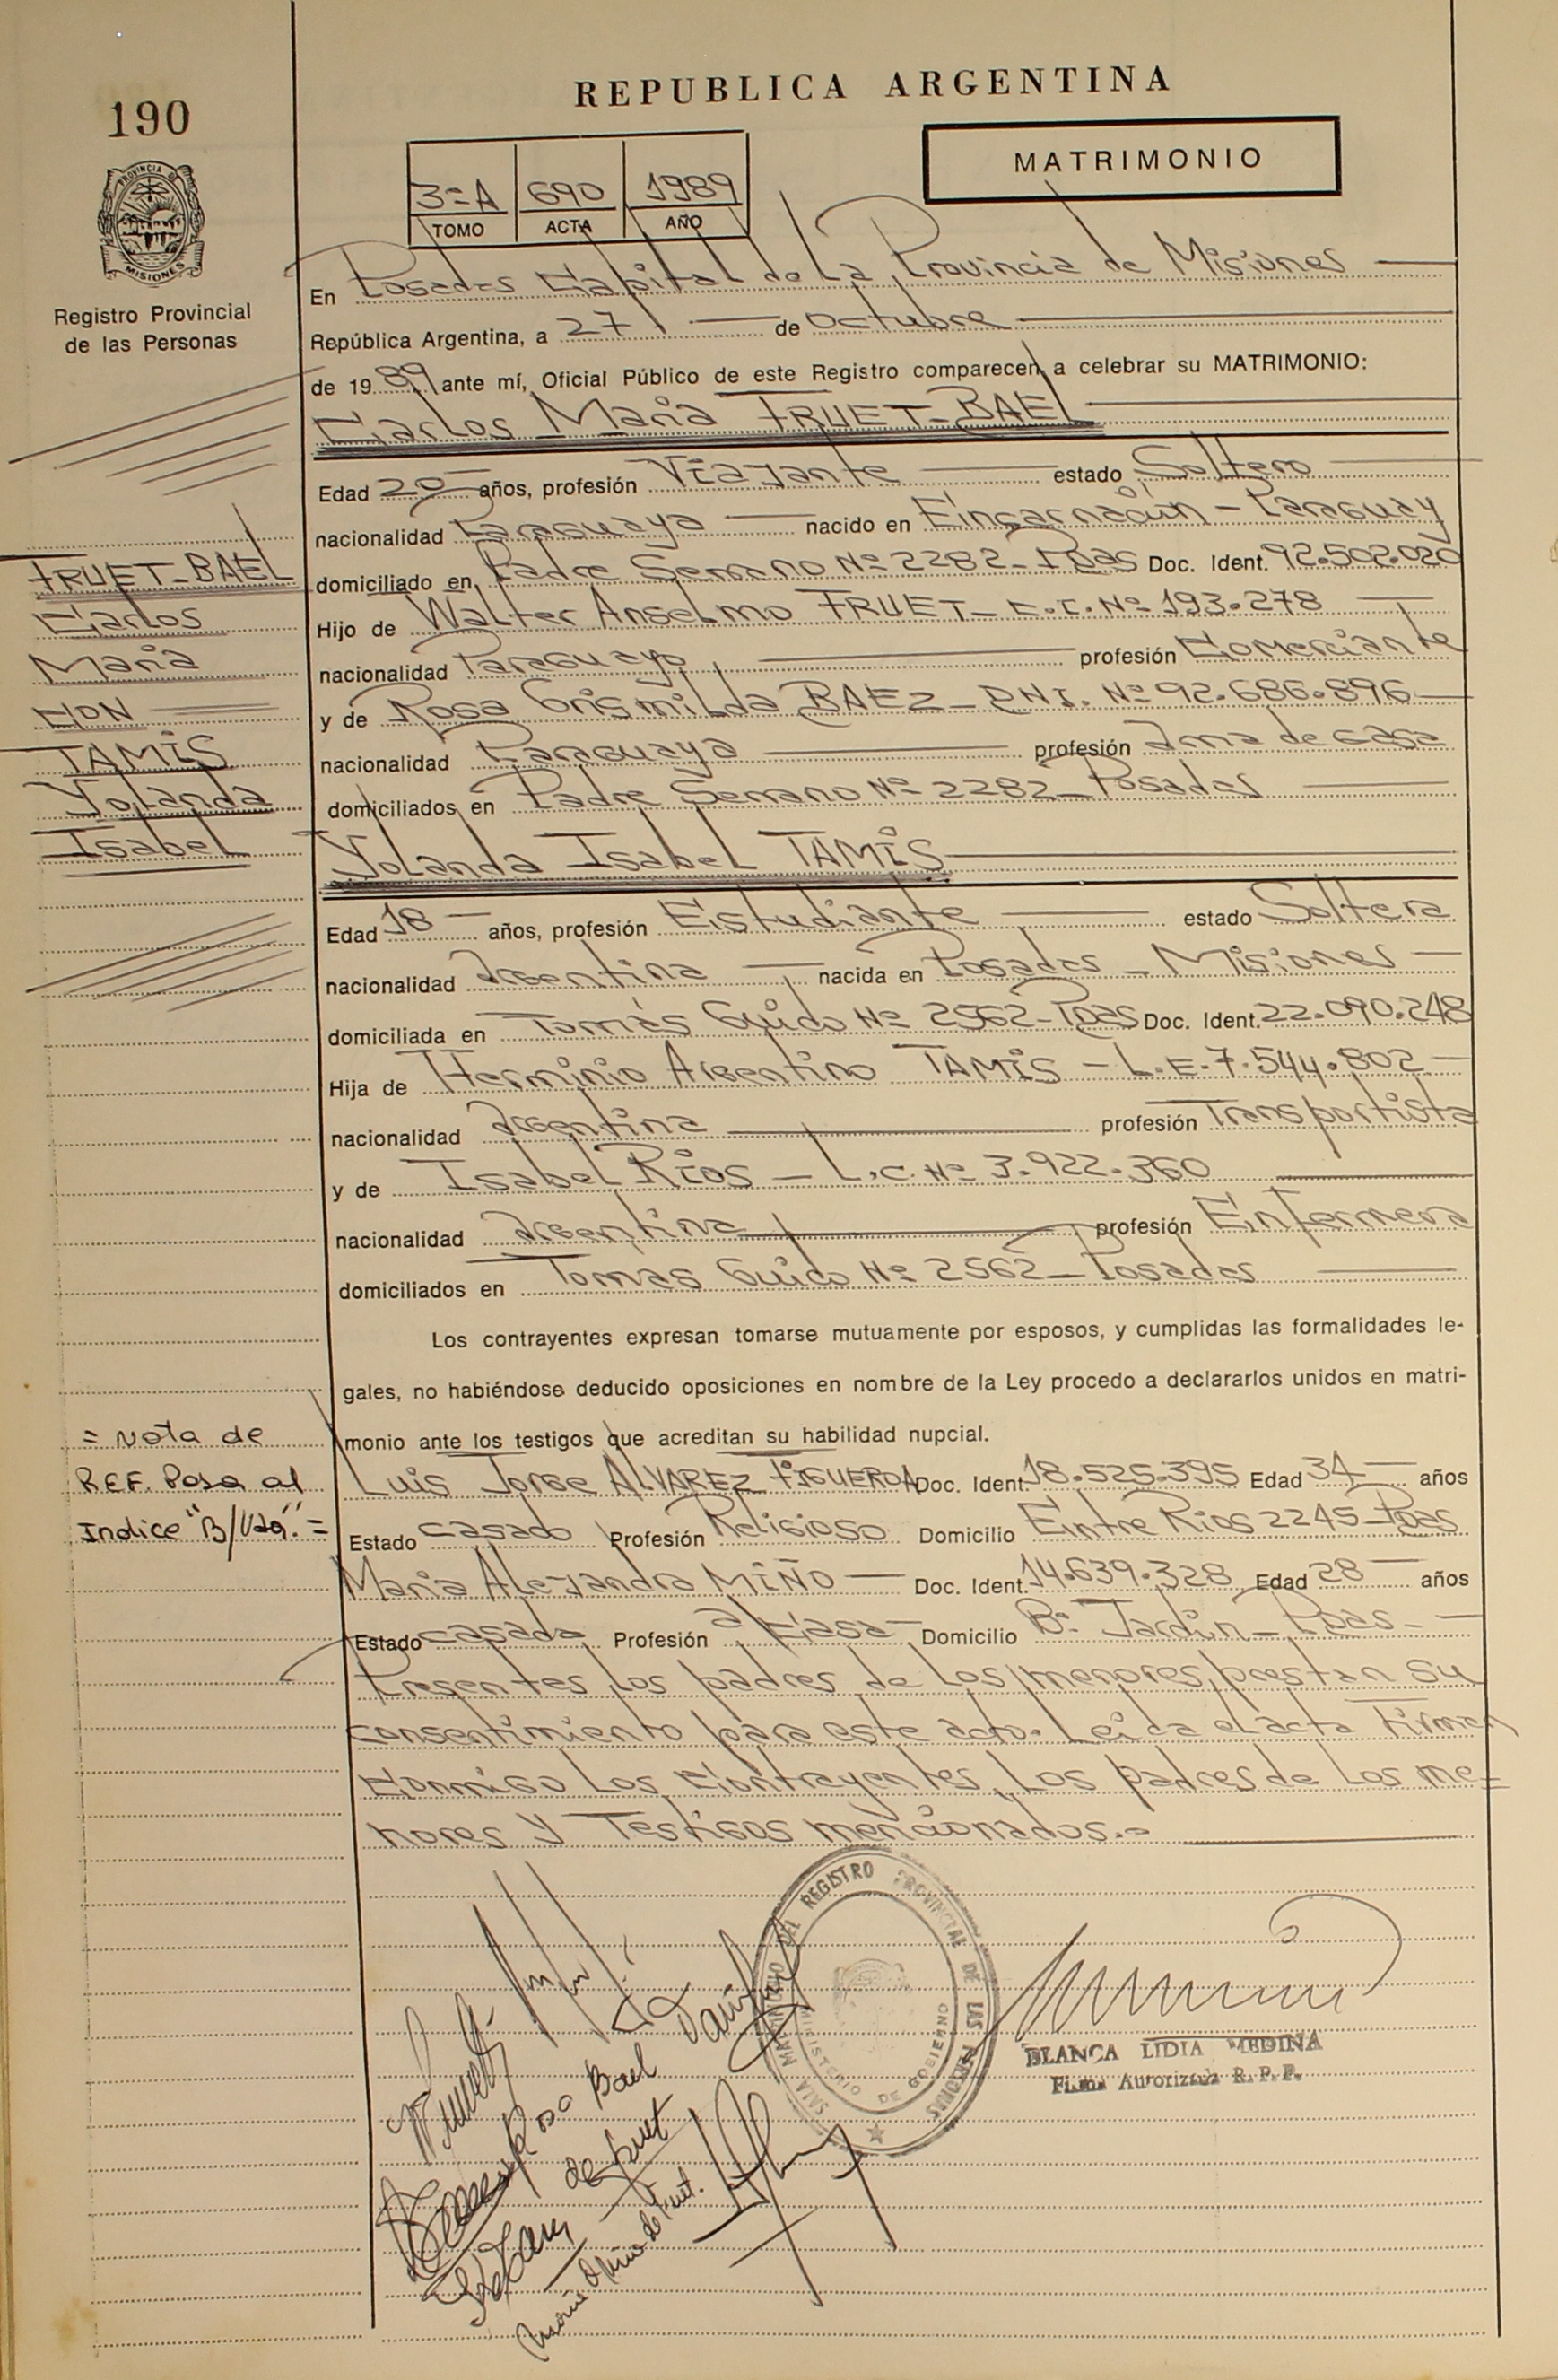 190
REPUBLICA ARGENTINA
MATRIMONIO
3=A 690 1989
TOMO ACTA AÑO
PROVINCIA DE
MISIONES
Registro Provincial
de las Personas
En Posadas Capital de la Provincia de Misiones
República Argentina, a 27 de Octubre
de 1989 ante mí, Oficial Público de este Registro comparecen a celebrar su MATRIMONIO:
Carlos María FRUET-BAEL
Edad 20 años, profesión Viajante estado Soltero
nacionalidad Paraguaya nacido en Encarnación - Paraguay
domiciliado en Padre Serrano Nº 2282 - Pdas Doc. Ident. 92.502.020
Hijo de Walter Anselmo FRUET - C.I. Nº 193.278
nacionalidad Paraguayo profesión Comerciante
y de Rosa Grismilda BAEz - DNI. Nº 92.686.896
nacionalidad Paraguaya profesión Ama de casa
domiciliados en Padre Serrano Nº 2282 - Posadas
Yolanda Isabel TAMIS
Edad 18 años, profesión Estudiante estado Soltera
nacionalidad Argentina nacida en Posadas - Misiones
domiciliada en Tomás Guido Nº 2562 - Pdas Doc. Ident. 22.090.248
Hija de Herminio Argentino TAMIS - L.E. 7.544.802
nacionalidad Argentina profesión Transportista
y de Isabel Ríos - L.C. Nº 3.922.360
nacionalidad Argentina profesión Enfermera
domiciliados en Tomás Guido Nº 2562 - Posadas
FRUET-BAEL
Carlos
María
CON
TAMIS
Yolanda
Isabel
Los contrayentes expresan tomarse mutuamente por esposos, y cumplidas las formalidades le-
gales, no habiéndose deducido oposiciones en nombre de la Ley procedo a declararlos unidos en matri-
monio ante los testigos que acreditan su habilidad nupcial.
= Nota de
REF. Pasa al
Indice "B/Vta". =
Luis Jorge ALVAREZ FIGUEROA Doc. Ident. 18.525.395 Edad 34 años
Estado casado Profesión Religioso Domicilio Entre Ríos 2245 - Pdas
María Alejandra MIÑO Doc. Ident. 14.639.328 Edad 28 años
Estado casada Profesión a/ Casa Domicilio Bº Jardín - Pdas -
Presentes los padres de los menores, prestan su
consentimiento para este acto. Leída el acta firman
conmigo los contrayentes, los padres de los me=
nores y Testigos mencionados.=
Rosa Bael
de Fruet
SALA MATRIMONIO DEL REGISTRO PROVINCIAL DE LAS PERSONAS
MINISTERIO DE GOBIERNO
BLANCA LIDIA MEDINA
Firma Autorizada R. P. P.